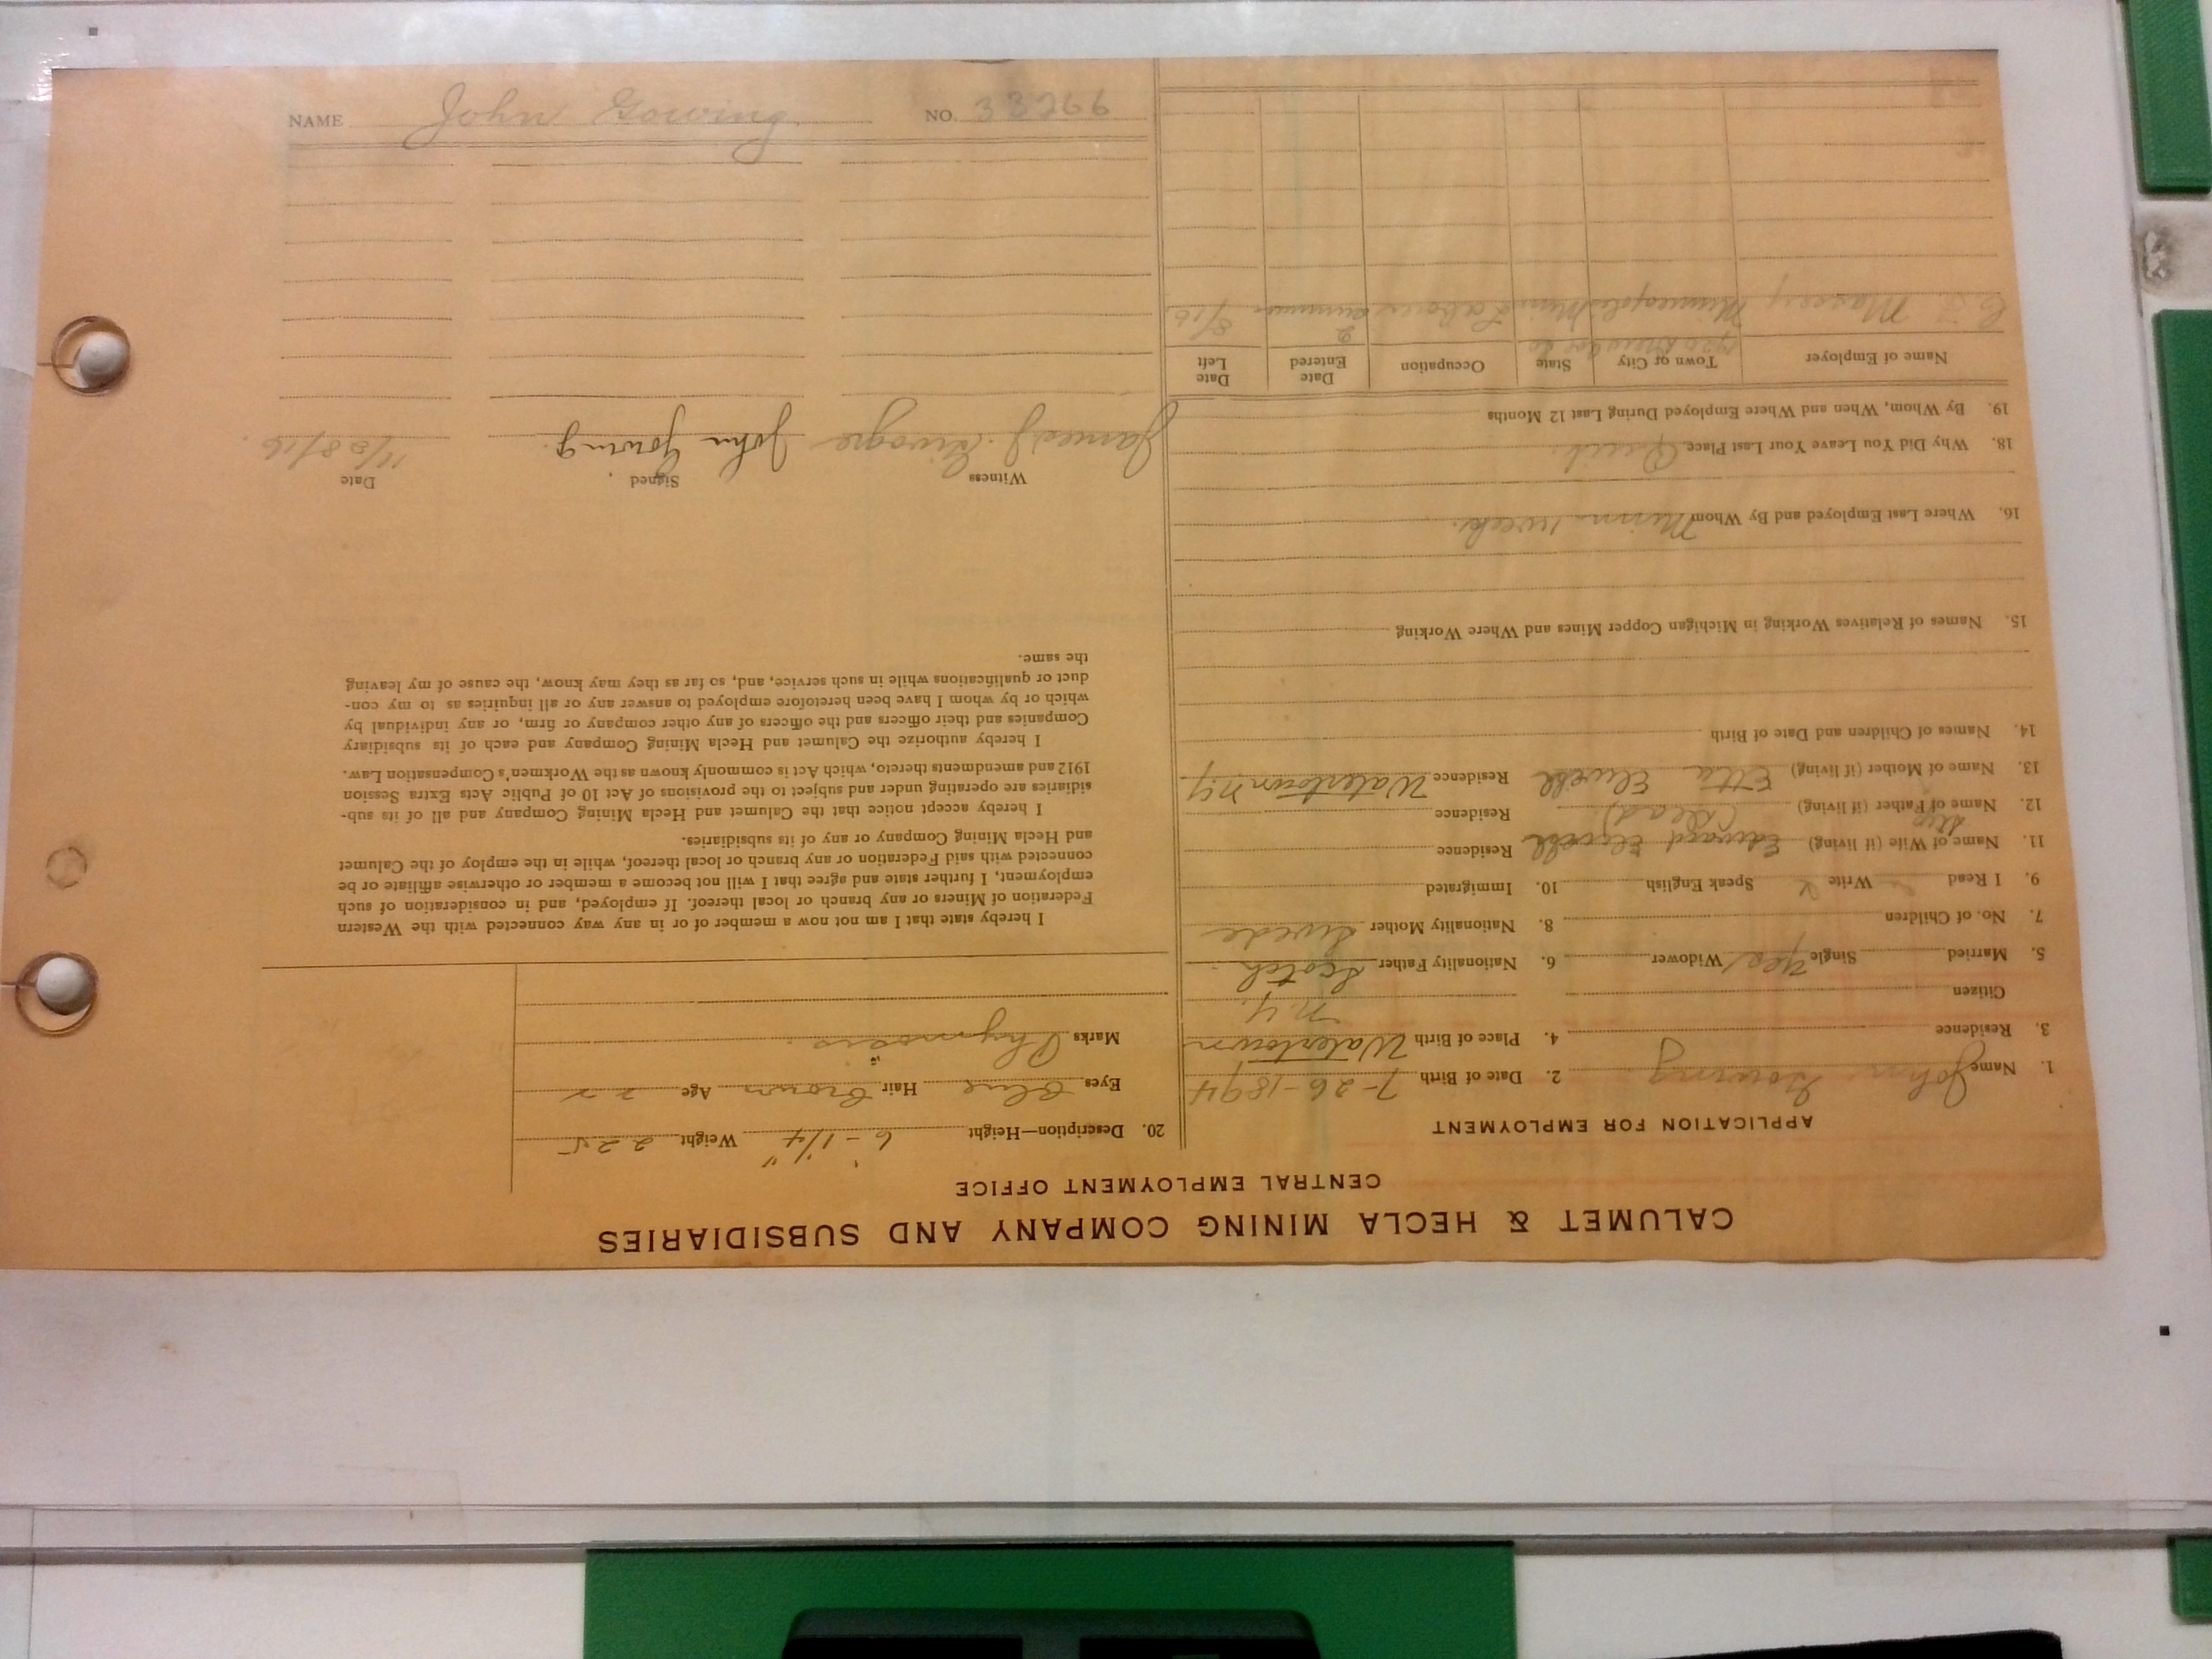 CALUMET & HECLA MINING COMPANY AND SUBSIDIARIES
CENTRAL EMPLOYMENT OFFICE
APPLICATION FOR EMPLOYMENT
1. Name John Gowing 2. Date of Birth 7-26-1894
3. Residence 4. Place of Birth Watertown
Citizen N.Y.
5. Married Single Yes Widower 6. Nationality Father Scotch
7. No. of Children 8. Nationality Mother Swede
9. I Read Write Speak English 10. Immigrated
11. Name of Wife (if living) Edward Elwell Residence
Step
12. Name of Father (if living) (Dead) Residence
13. Name of Mother (if living) Etta Elwell Residence Watertown N.Y
14. Names of Children and Date of Birth
15. Names of Relatives Working in Michigan Copper Mines and Where Working
16. Where Last Employed and By Whom Minn week.
18. Why Did You Leave Your Last Place Quit.
19. By Whom, When and Where Employed During Last 12 Months
Name of Employer Town or City State Occupation Date Entered Date Left
Massey Minneapolis Minn Laborer summer 8/16
20. Description—Height 6'-1 1/4" Weight 225
Eyes Blue Hair Brown Age 22
Marks Phymosis.
I hereby state that I am not now a member of or in any way connected with the Western
Federation of Miners or any branch or local thereof. If employed, and in consideration of such
employment, I further state and agree that I will not become a member or otherwise affiliate or be
connected with said Federation or any branch or local thereof, while in the employ of the Calumet
and Hecla Mining Company or any of its subsidiaries.
I hereby accept notice that the Calumet and Hecla Mining Company and all of its sub-
sidiaries are operating under and subject to the provisions of Act 10 of Public Acts Extra Session
1912 and amendments thereto, which Act is commonly known as the Workmen's Compensation Law.
I hereby authorize the Calumet and Hecla Mining Company and each of its subsidiary
Companies and their officers and the officers of any other company or firm, or any individual by
which or by whom I have been heretofore employed to answer any or all inquiries as to my con-
duct or qualifications while in such service, and, so far as they may know, the cause of my leaving
the same.
Witness Signed Date
James J. John Gowing. 11/28/16.
NAME John Gowing. NO. 33266